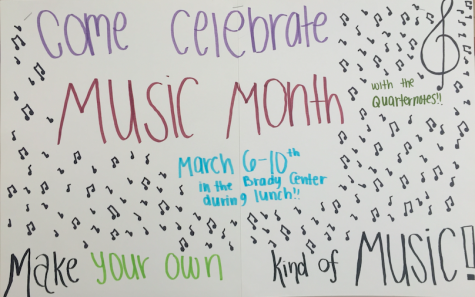 Come celebrate
Music Month
with the
Quarternotes!!
March 6-10th
in the Brady Center
during lunch!!
Make your own kind of MUSIC!